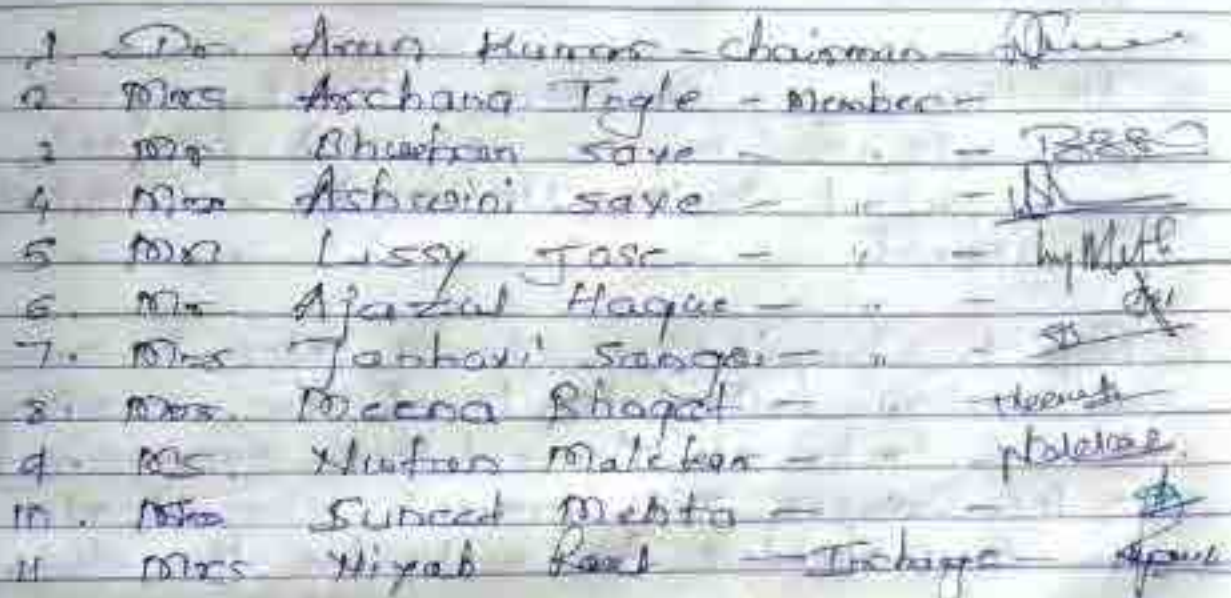 1. Dr. Arun Kumar - Chairman -
2. Mrs Archana Ingle - Member -
3 Mr Bhushan Save - " -
4. Mrs Ashwini Save - " -
5 Mrs Lissy Jose - " -
6. Mr Ajazul Haque - " -
7. Mrs Janhavi Sangoi - " -
8. Mrs. Meena Bhagat - "
9. Ms. Malekar - "
10. Suneet Mehta - " -
11 Mrs - Incharge -